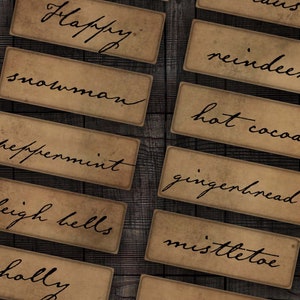 Happy
snowman
peppermint
sleigh bells
holly
reindeer
hot cocoa
gingerbread
mistletoe